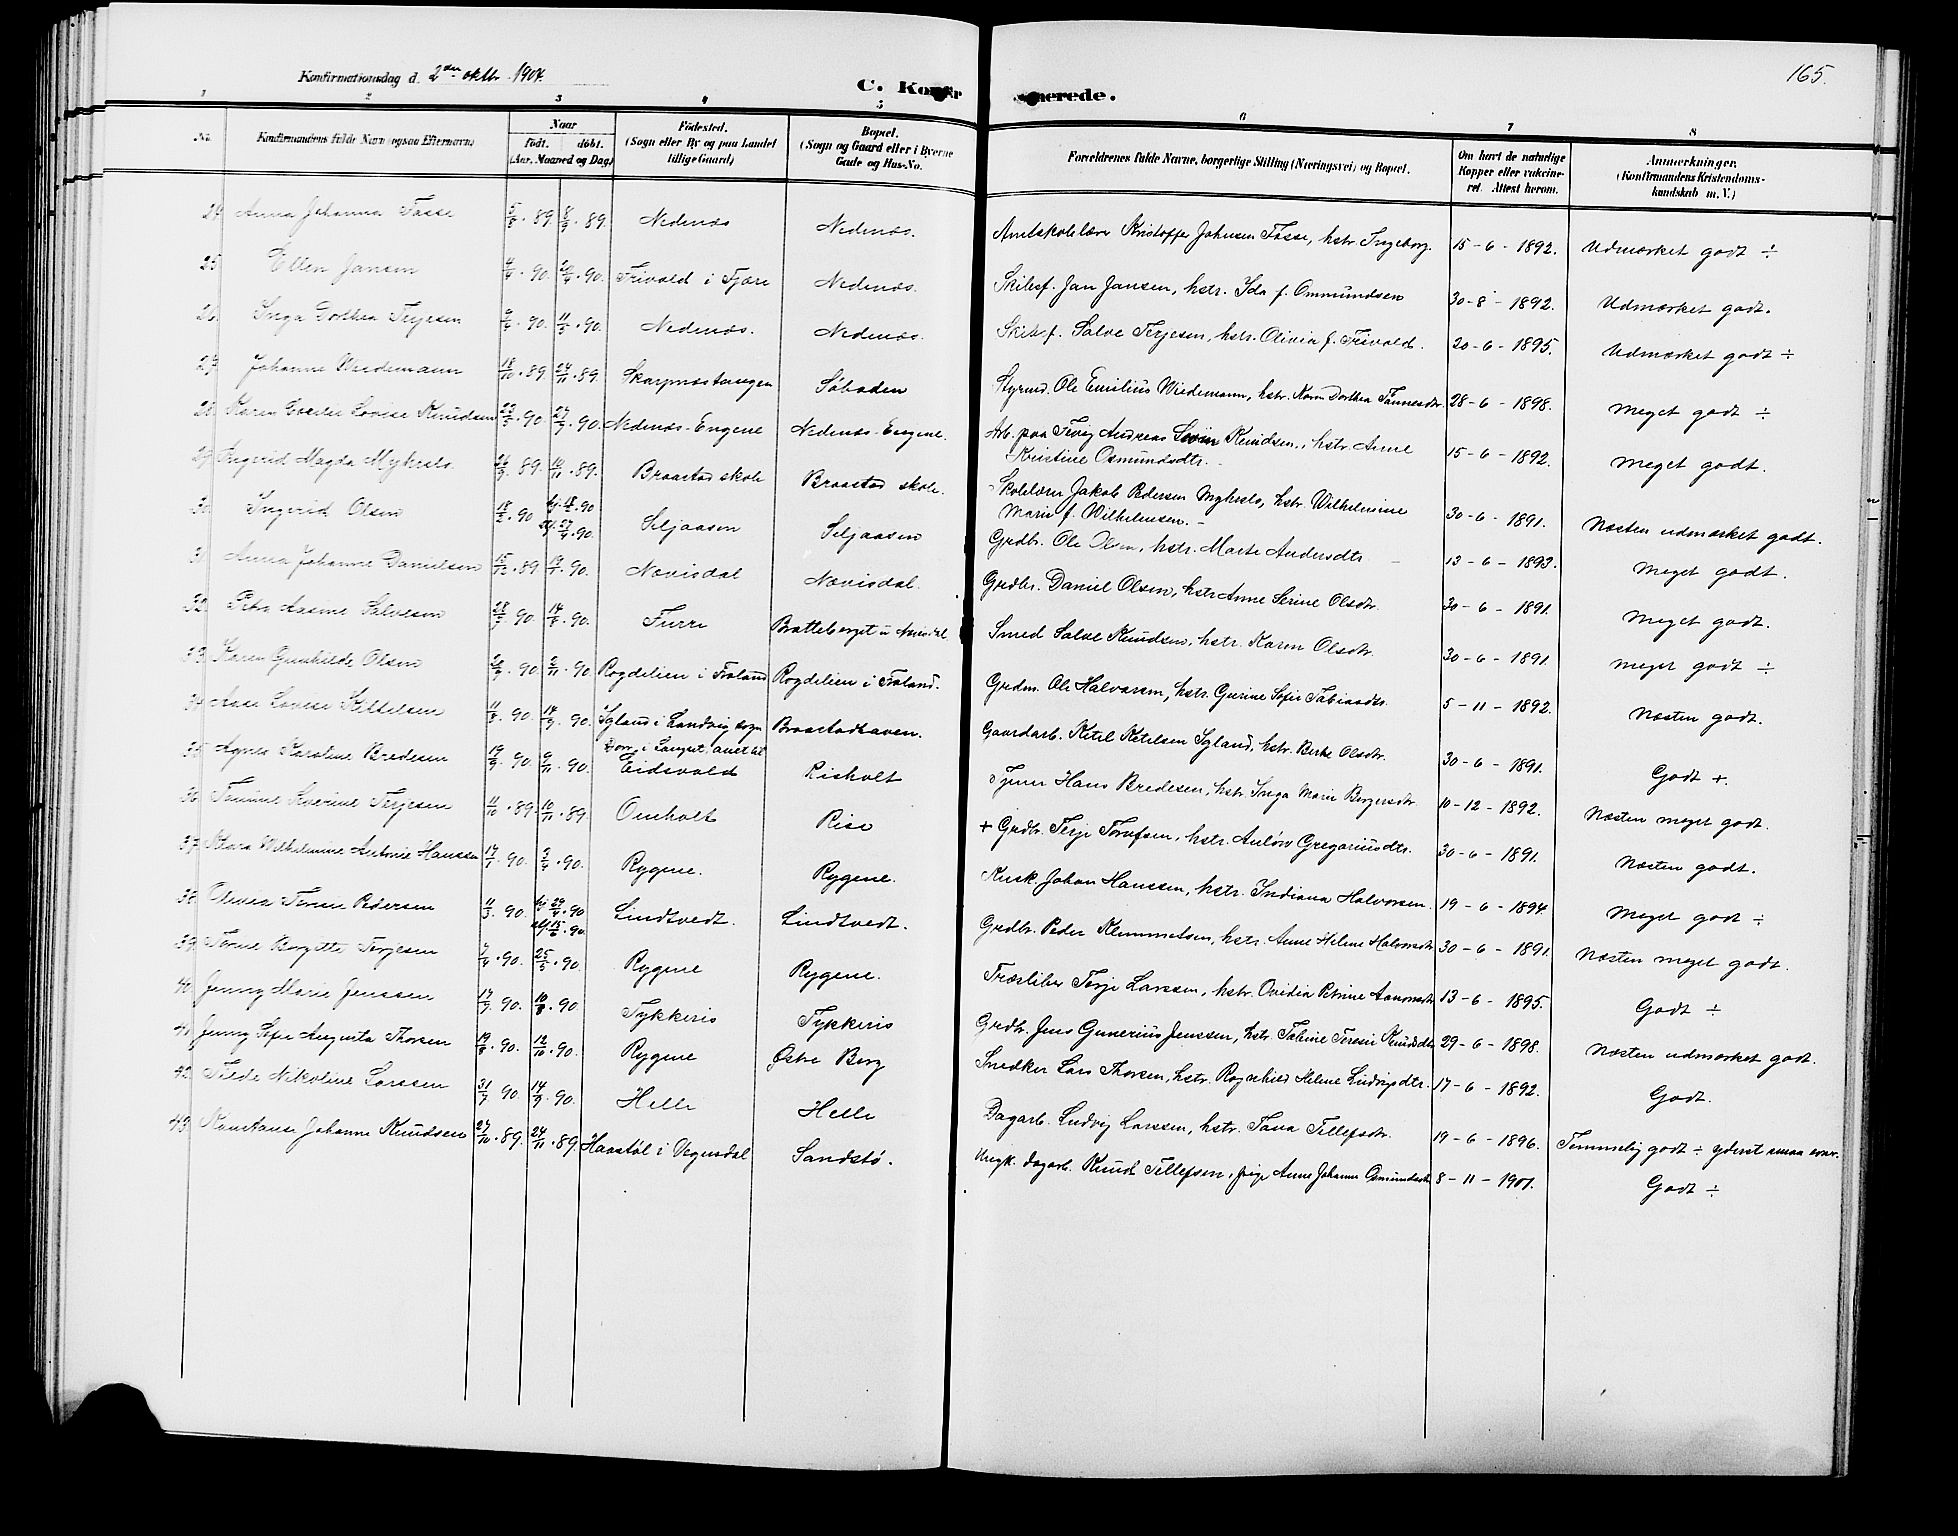 Konfirmationsdag d. 2den oktbr. 1904.
C. Konfir merede.
165.
1 2 3 4 5 6 7 8
No. Konfirmandens fulde Navn (ogsaa Efternavn)
Naar født. døbt. (Aar, Maaned og Dag)
Fødested. (Sogn eller By og paa Landet tillige Gaard)
Bopæl. (Sogn og Gaard eller i Byerne Gade og Hus-No.
Forældrenes fulde Navne, borgerlige Stilling (Næringsvei) og Bopæl.
Om havt de naturlige Kopper eller vakcineret. Attest herom.
Anmærkninger. (Konfirmandens Kristendomskundskab m. V.)
24 Anna Johanna Fosse 89. 89. Nedenæs Nedenæs. Amtskolelærer Kristoffer Johnsen Fosse, hstr. Ingeborg. 15-6-1892. Udmærket godt ÷
25 Ellen Jansen 90. 90. Trivold i Fjære Nedenæs. Skibsf. Jan Jansen, hstr. Ida f. Ommundsen 30-8-1892. Udmærket godt.
26 Inga Dorthea Terjesen 90. 90. Nedenæs. Nedenæs. Skibsf. Salve Terjesen, hstr. Olivia f. Trivold. 20-6-1895. Udmærket godt ÷
27 Johanne Wiedemann 18/10 89. 24/11 89. Skarpnæstangen Søboden Styrmd. Ole Emilius Wiedemann, hstr. Karen Dorthea Tønnesdtr. 28-6-1898. Meget godt ÷
28 Karen Lovise Knudsen 90. 90. Nedenæs-Engene Nedenæs-Engene. Arb. paa Fevig Andreas Knudsen, hstr. Anne
Kristine Osmundsdtr. 15-6-1892. Meget godt.
29 Ingerid Magda Myhrslo. 89. 89. Braastad skole Braastad skole. Skolelærer Jakob Pedersen Myhrslo, hstr. Wilhelmine
Marie f. Wilhelmsen. 30-6-1891. Næsten udmærket godt.
30 Ingerid Olsen 18/2 90 90 90. Seljaasen Seljaasen Grdbr. Ole Olsen, hstr. Marte Andersdtr. 13-6-1893. Meget godt.
31 Anna Johanne Danielsen 15/12 89 90. Nævisdal Nævisdal. Grdbr. Daniel Olsen, hstr. Anne Serine Olsdtr. 30-6-1891. Meget godt.
32. Petra Aasine Salvesen 90. 90. Furre Bratteberget i Grdbr. Smed Salve Knudsen, hstr. Karen Olsdtr. 30-6-1891. Meget godt ÷
33. Karen Gunhilde Olsen 90. 90. Rogdelien i Froland Rogdelien i Froland. Grdm. Ole Halvorsen, hstr. Gurine Sofie Tobiasdtr. 5-11-1892. Næsten godt.
34 Aase Lovise Kittelsen 90. 90. Igland i Landvig sogn Braastadhaven. Gaardarb. Ketil Ketilsen Igland, hstr. Berte Olsdtr. 30-6-1891. Godt +.
35 Agnes Karoline Bredesen 90. 90. Eidsvold Risholt Hans Bredesen, hstr. Inga Marie Bergersdtr. 10-12-1892. Næsten meget godt.
36 Tomine Severine Terjesen 11/10 89. 10/11 89. Omholt Rise + Grdbr. Terje Torufsen, hstr. Anlaug Gregoriusdtr. 30-6-1891. Næsten godt.
37. Klara Wilhelmine Antonie Hanssen 90. 90. Rygene. Rygene. Kusk Johan Hanssen, hstr. Indiana Halvorsen. 19-6-1894. Meget godt ÷
38. Olivia Pedersen 11/3 90. 90 90. Lindtvedt. Lindtvedt. Grdbr. Peder Klemmetsen, hstr. Anne Helene Halvorsdtr. 30-6-1891. Næsten meget godt.
39. Torine Borgitte Terjesen 90. 25/5 90. Rygene Rygene. Træsliber Terje Larssen, hstr. Ovidia Petrine Aanonsdtr. 13-6-1895. Godt ÷
40. Jenny Marie Jenssen 90. 90 Tykkeris Tykkeris Grdbr. Jens Gunerius Jenssen, hstr. Tobine Terese Knudsdtr. 29-6-1898. Næsten udmærket godt.
41. Jenny Sofie Augusta Thorsen 90. 12/10 90. Rygene Østre Berg Snedker Lars Thorsen, hstr. Ragnhild Helene Ludvigsdtr. 17-6-1892. Godt.
42. Tilde Nikoline Larssen 31/7 90. 14/9 90. Helle Helle Dagarb. Ludvig Larssen, hstr. Tava Tellefsdtr. 19-6-1896. Temmelig godt ÷ yderst smaa evner.
43. Konstanse Johanne Knudsen 27/10 89. 24/11 89. Haastøl i Vegusdal Sandstø. Ungk. dagarb. Knut Tellefsen, pige Anne Johanne Osmundsdtr. 8-11-1901. Godt ÷